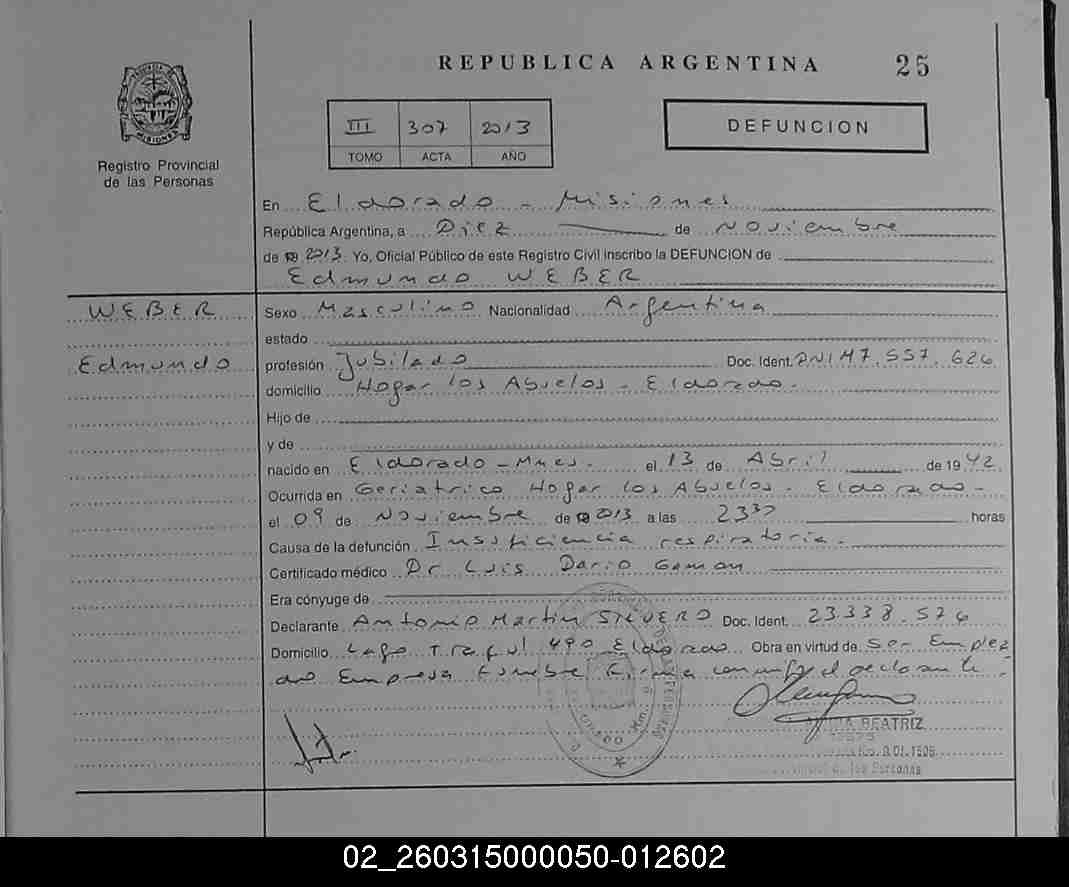 REPUBLICA ARGENTINA 25
PROVINCIA DE MISIONES
Registro Provincial
de las Personas
III 307 2013
TOMO ACTA AÑO
DEFUNCION
En Eldorado - Misiones
República Argentina, a Diez de Noviembre
de 19 2013. Yo, Oficial Público de este Registro Civil inscribo la DEFUNCION de
Edmundo WEBER
WEBER
Edmundo
Sexo Masculino Nacionalidad Argentina
estado
profesión Jubilado Doc. Ident. DNI M7.557.626
domicilio Hogar los Abuelos - Eldorado.
Hijo de
y de
nacido en Eldorado - Mnes. el 13 de Abril de 1942.
Ocurrida en Geriatrico Hogar los Abuelos - Eldorado -
el 09 de Noviembre de 19 2013 a las 23 horas
Causa de la defunción Insuficiencia respiratoria.
Certificado médico Dr Luis Dario
Era cónyuge de
Declarante Antonio Martin SILVERO Doc. Ident. 23338.576
Domicilio Lago Traful 490 Eldorado Obra en virtud de Ser Emplea
do Empresa Funebre Firma conmigo el declarante.
BEATRIZ
de las Personas
02_260315000050-012602